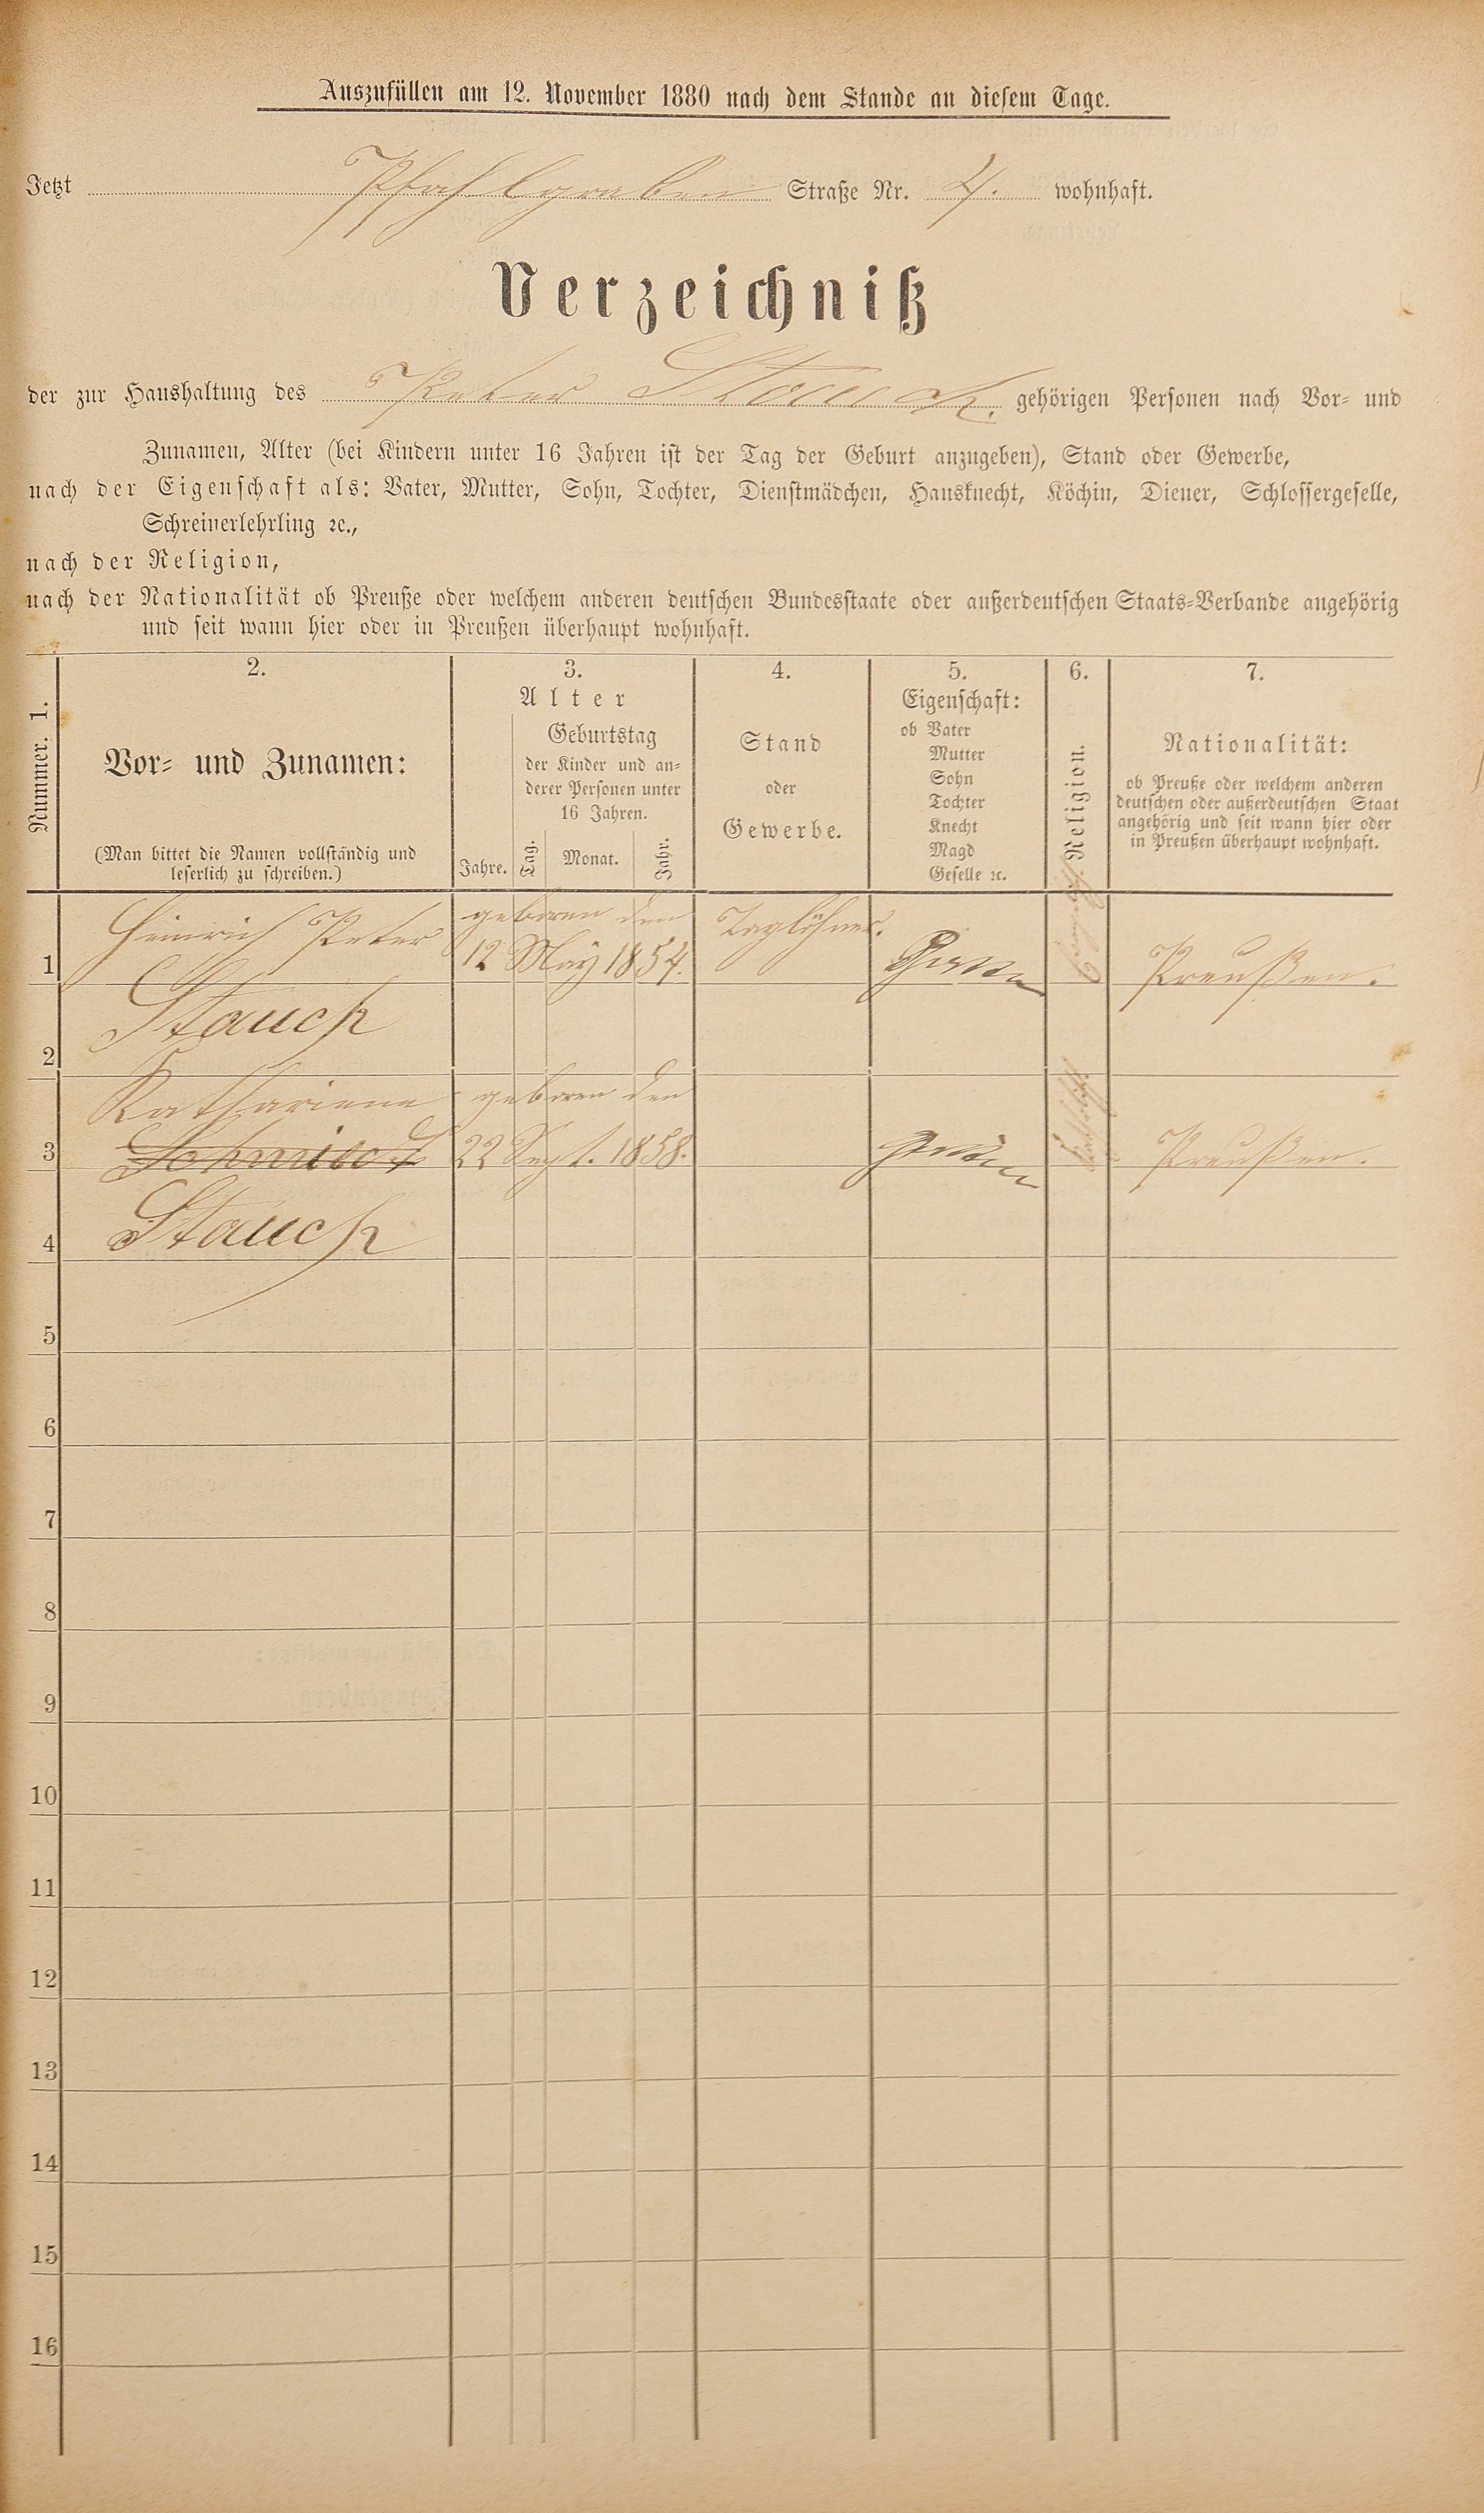 Auszufüllen am 12. November 1880 nach dem Stande an diesem Tage.
Jetzt Pfahlgraben Straße Nr. 4. wohnhaft.
Verzeichniß
der zur Haushaltung des Peter Stauch. gehörigen Personen nach Vor- und
Zunamen, Alter (bei Kindern unter 16 Jahren ist der Tag der Geburt anzugeben), Stand oder Gewerbe,
nach der Eigenschaft als: Vater, Mutter, Sohn, Tochter, Dienstmädchen, Hausknecht, Köchin, Diener, Schlossergeselle,
Schreinerlehrling ꝛc.,
nach der Religion,
nach der Nationalität ob Preuße oder welchem anderen deutschen Bundesstaate oder außerdeutschen Staats-Verbande angehörig
und seit wann hier oder in Preußen überhaupt wohnhaft.
Nummer. 1.
2.
Vor- und Zunamen:
(Man bittet die Namen vollständig und
leserlich zu schreiben.)
3.
Alter
Jahre.
Geburtstag
der Kinder und an-
derer Personen unter
16 Jahren.
Tag. Monat. Jahr.
4.
Stand
oder
Gewerbe.
5.
Eigenschaft:
ob Vater
Mutter
Sohn
Tochter
Knecht
Magd
Geselle ꝛc.
6.
Religion.
7.
Nationalität:
ob Preuße oder welchem anderen
deutschen oder außerdeutschen Staat
angehörig und seit wann hier oder
in Preußen überhaupt wohnhaft.
Heinrich Peter geboren den Taglöhner.
1 12 May 1854. Preußen.
Stauch
2
Kathariena geboren den
3 Schmidt 22 Sept. 1858. Preußen.
Stauch
4
5
6
7
8
9
10
11
12
13
14
15
16